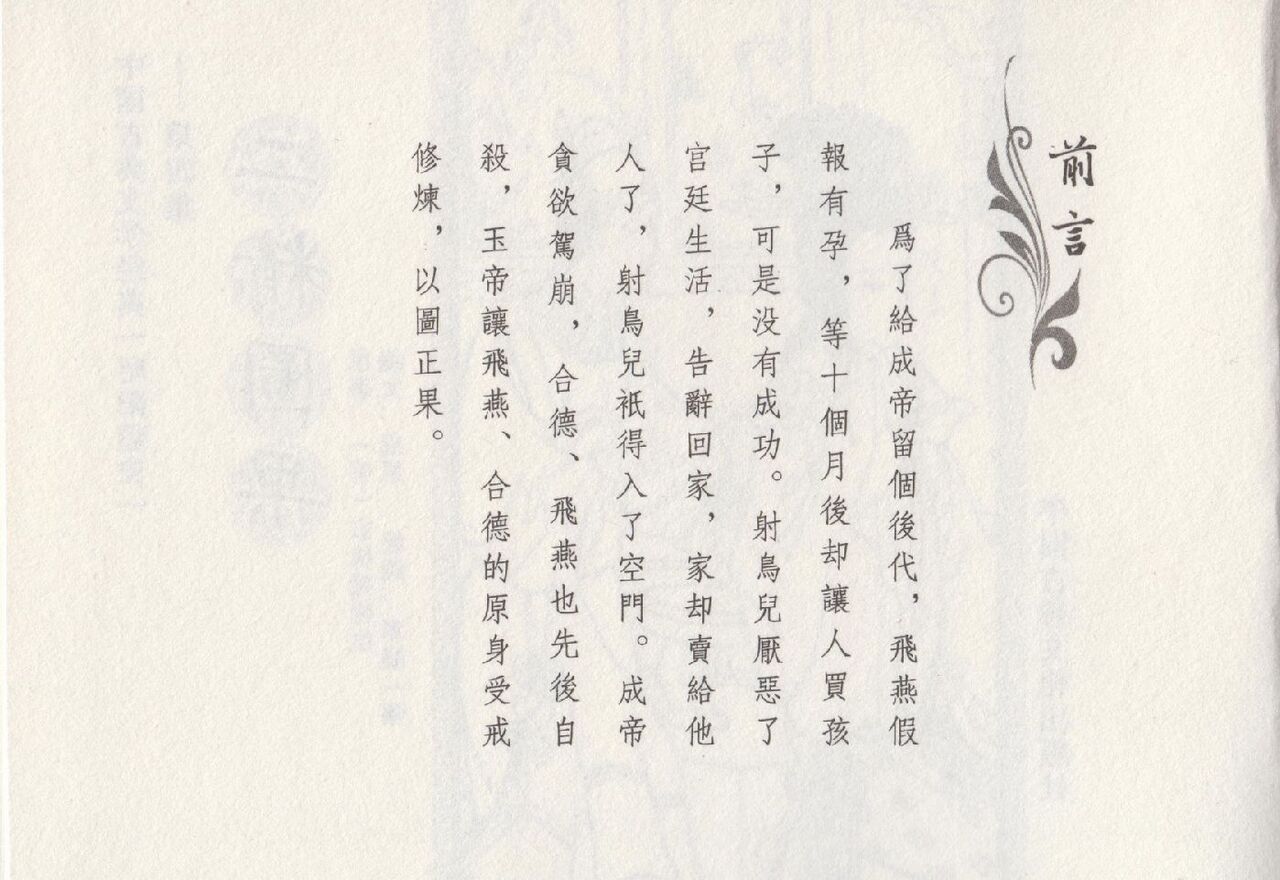 前言
爲了給成帝留個後代，飛燕假
報有孕，等十個月後却讓人買孩
子，可是没有成功。射鳥兒厭惡了
宫廷生活，告辭回家，家却賣給他
人了，射鳥兒衹得入了空門。成帝
貪欲駕崩，合德、飛燕也先後自
殺，玉帝讓飛燕、合德的原身受戒
修煉，以圖正果。